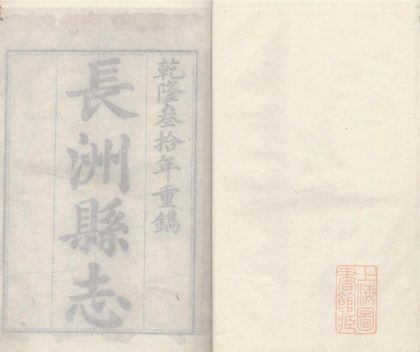 乾隆叁拾年重鐫
長洲縣志
上海圖
書館藏